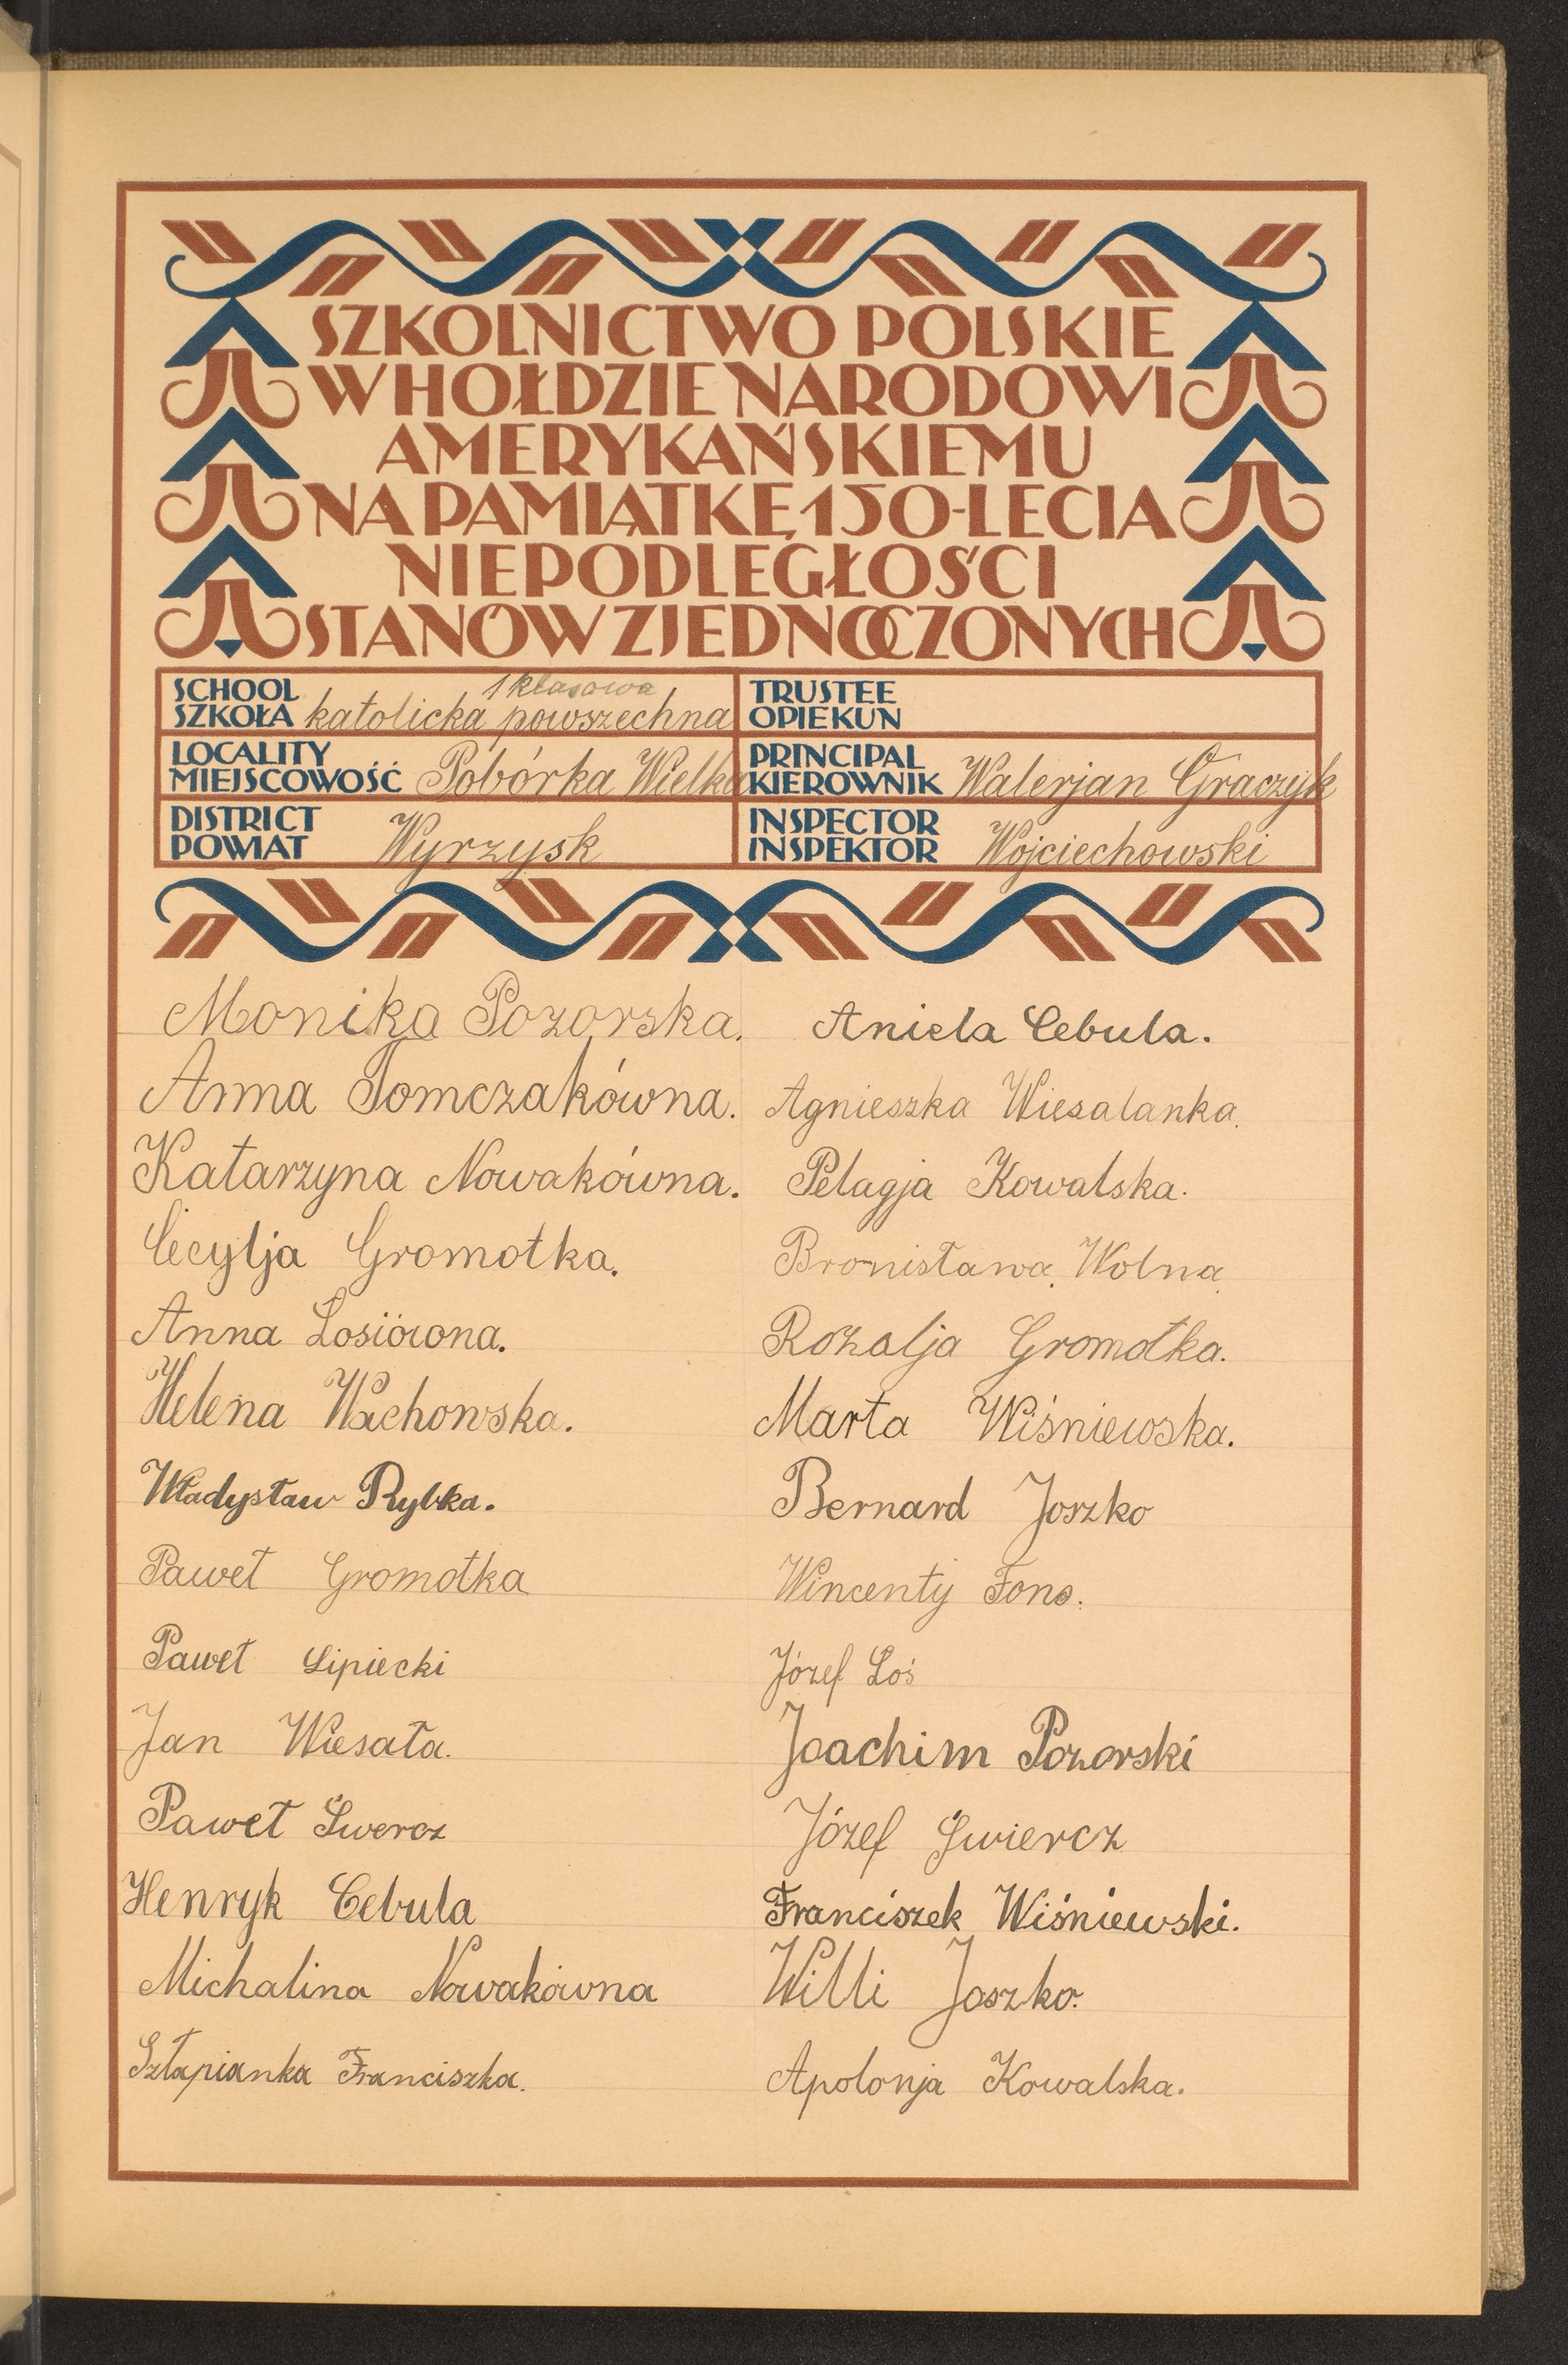 SZKOLNICTWO POLSKIE
W HOŁDZIE NARODOWI
AMERYKAŃSKIEMU
NA PAMIĄTKĘ 150-LECIA
NIEPODLEGŁOŚCI
STANÓW ZJEDNOCZONYCH
SCHOOL
SZKOŁA katolicka 1 klasowa powszechna
TRUSTEE
OPIEKUN
LOCALITY
MIEJSCOWOŚĆ Pobórka Wielka
PRINCIPAL
KIEROWNIK Walerjan Graczyk
DISTRICT
POWIAT Wyrzysk
INSPECTOR
INSPEKTOR Wojciechowski
Monika Pozorska.
Anna Tomczakówna.
Katarzyna Nowakówna.
Cecylja Gromotka.
Anna Łosiówona.
Helena Wachowska.
Władysław Rybka.
Paweł Gromotka
Paweł Lipiecki
Jan Wiesała.
Paweł Śwercz
Henryk Cebula
Michalina Nowakówna
Szłapianka Franciszka.
Aniela Cebula.
Agnieszka Wiesalanka.
Pelagja Kowalska.
Bronisława Wolna
Rozalja Gromotka.
Marta Wiśniewska.
Bernard Joszko
Wincenty Fons.
Józef Łoś
Joachim Pozorski
Józef Świercz
Franciszek Wiśniewski.
Willi Joszko.
Apolonja Kowalska.